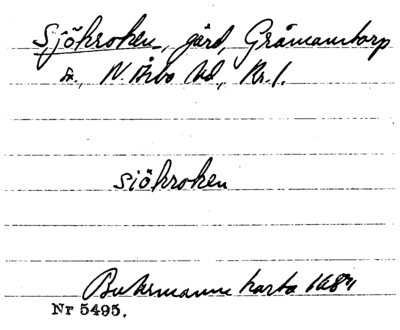 Sjökroken, gård, Gråmanstorp
sn, N. Åsbo hd, Kr. l.
sjökroken
Buhrmanns karta 1684
Nr 5495.